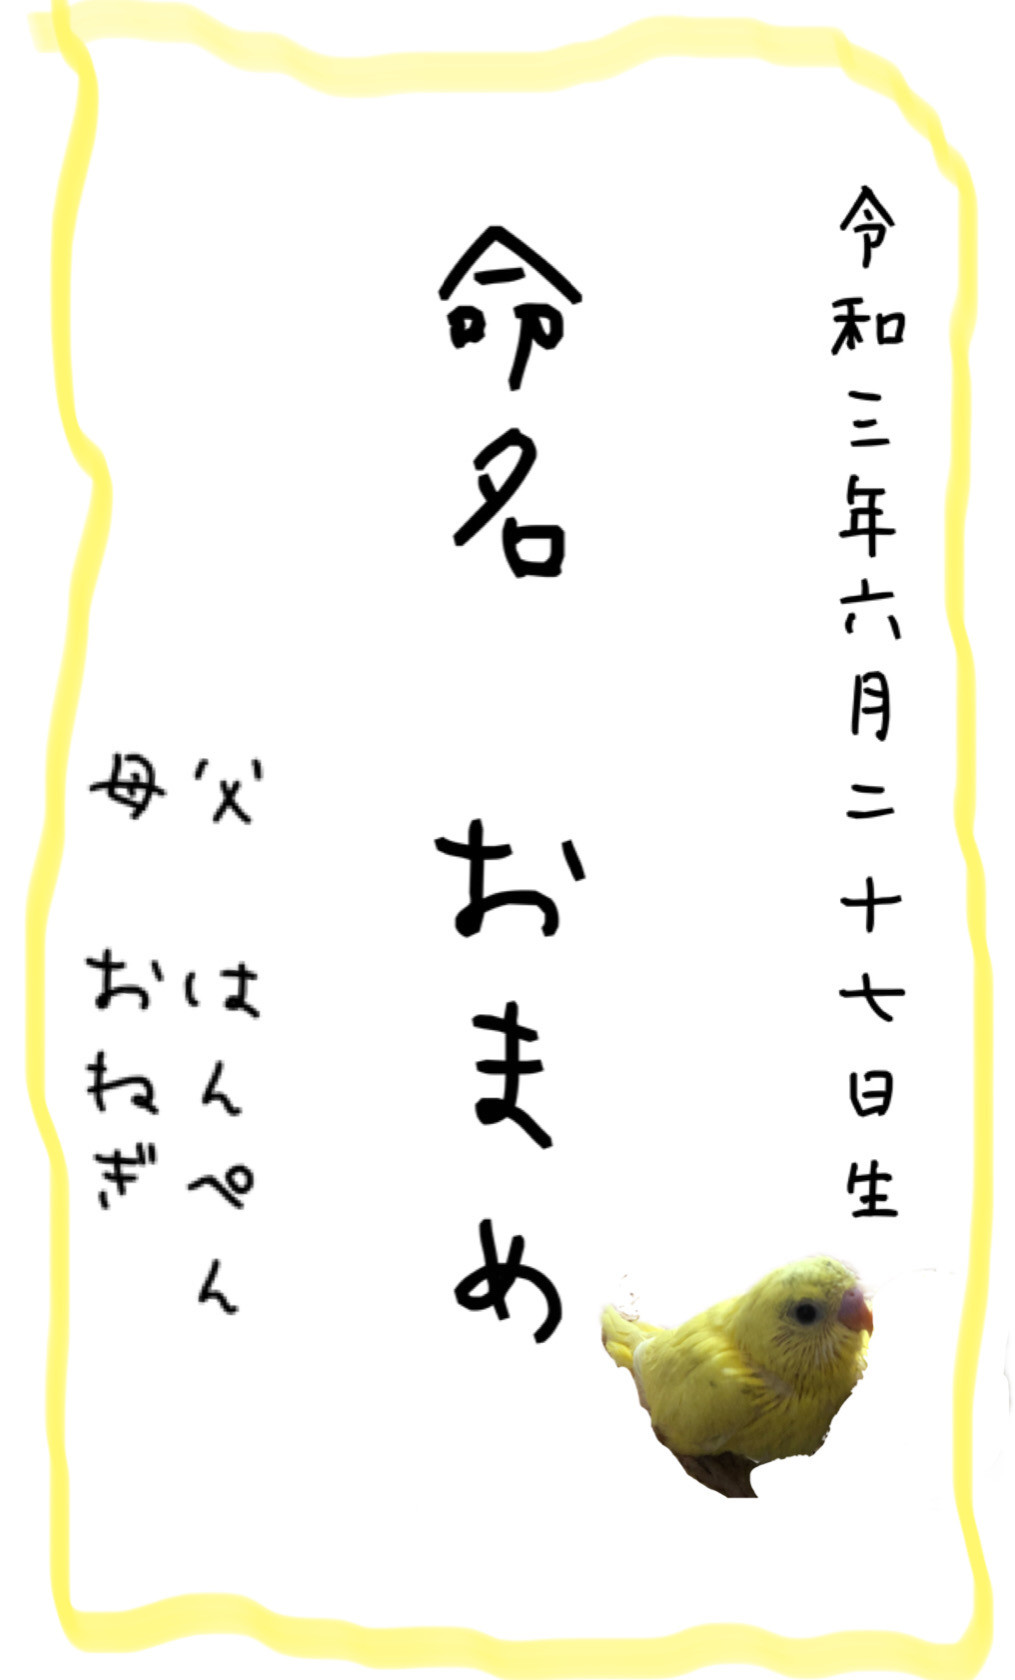 令和三年六月二十七日生
命名 おまめ
父 はんぺん
母 おねぎ